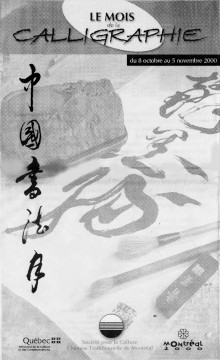 LE MOIS
de la
CALLIGRAPHIE
du 8 octobre au 5 novembre 2000
中國書法月
Québec
Société pour la Culture
Chinoise Traditionnelle de Montréal
Montréal
2000